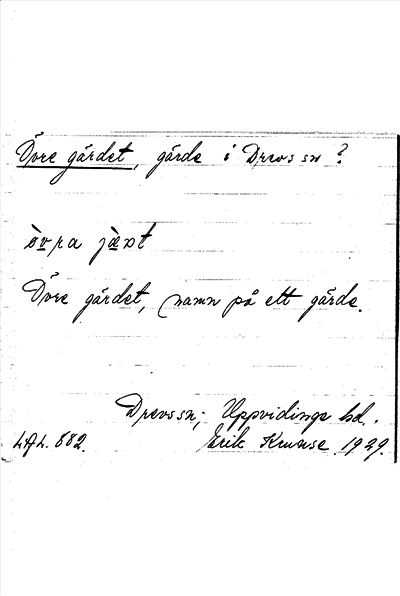 Övre gärdet, gärde i Drevs sn?
övra jæt
Övre gärdet, namn på ett gärde.
Drevs sn; Uppvidinge hd.
LAL. 682. Erik Kruuse 1929.